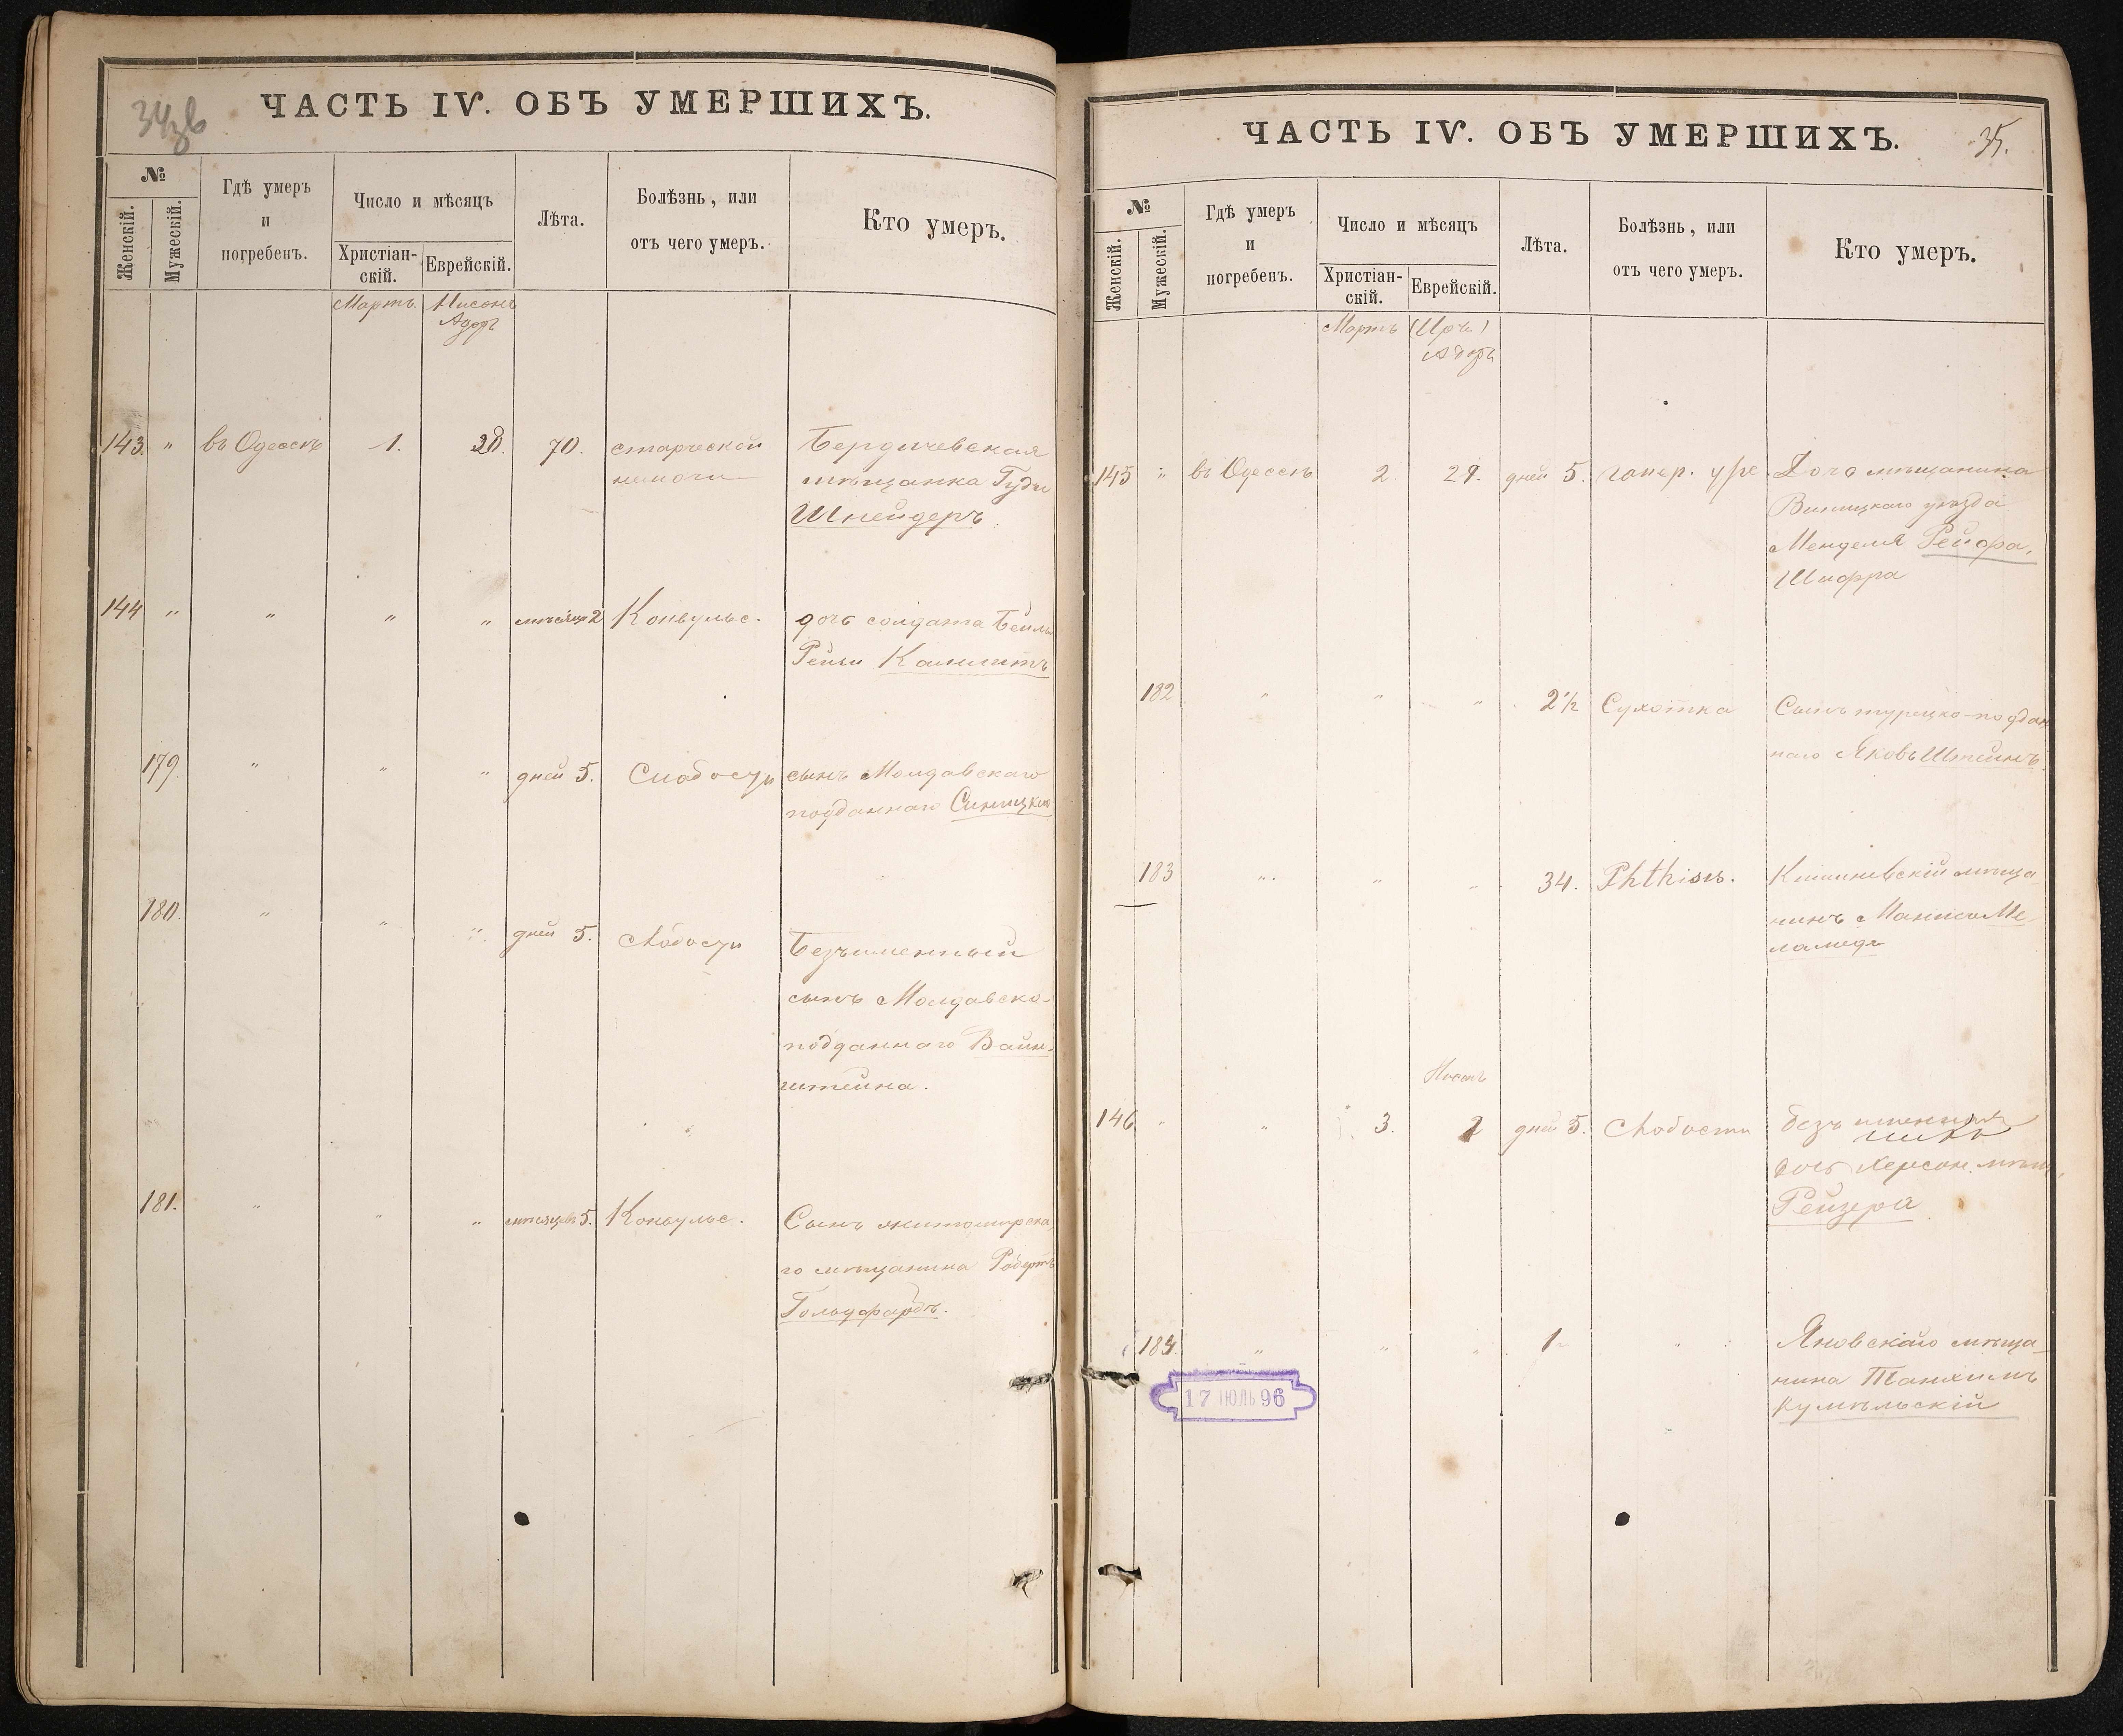 34об
ЧАСТЬ IV. ОБЪ УМЕРШИХЪ.
№
Женскій.
Мужескій.
Гдѣ умеръ
и
погребенъ.
Число и мѣсяцъ
Христіан-
скій.
Еврейскій.
Лѣта.
Болѣзнь, или
отъ чего умеръ.
Кто умеръ.
Мартъ Нисонъ
Адаръ
143. " въ Одессѣ 1. 70. старческой Бердичевская
немочи мѣщанка
Шнейдеръ
144 " " " " мѣсяца 2 Конвульс. дочь солдата Бейла
179. " " " дней 5. Слабости сынъ Молдавскаго
подданнаго Синицкаго
180. " " " дней 5. слабости Безъименный
сынъ Молдавско-
подданнаго Вайн-
штейна.
181. " " " мѣсяцевъ 5. Конвульс. Сынъ житомирска
го мѣщанина Робертъ
Гольдфарбъ.
ЧАСТЬ IV. ОБЪ УМЕРШИХЪ.
35.
№
Женскій.
Мужескій.
Гдѣ умеръ
и
погребенъ.
Число и мѣсяцъ
Христіан-
скій.
Еврейскій.
Лѣта.
Болѣзнь, или
отъ чего умеръ.
Кто умеръ.
Мартъ
Адаръ
145 " въ Одессѣ 2. 29. дней 5. Дочь мѣщанина
Виницкаго уѣзда
Менделя
Шифра
182 " " " 2 1/2 Сухотка Сынъ турецко-поддан
наго Яковъ Штейнъ.
183 " " " 34. Phthisis. Кишиневскій мѣща
нинъ Ме
ламедъ
Нисонъ
146 " " 3. 2 дней 5. Слабости безъ имен
дочь Херсон. мѣщ.
Рейзера
184. " " " 1 " Яновскаго мѣща-
нина Танхимъ
Кумѣльскій
17 ІЮЛЬ 96